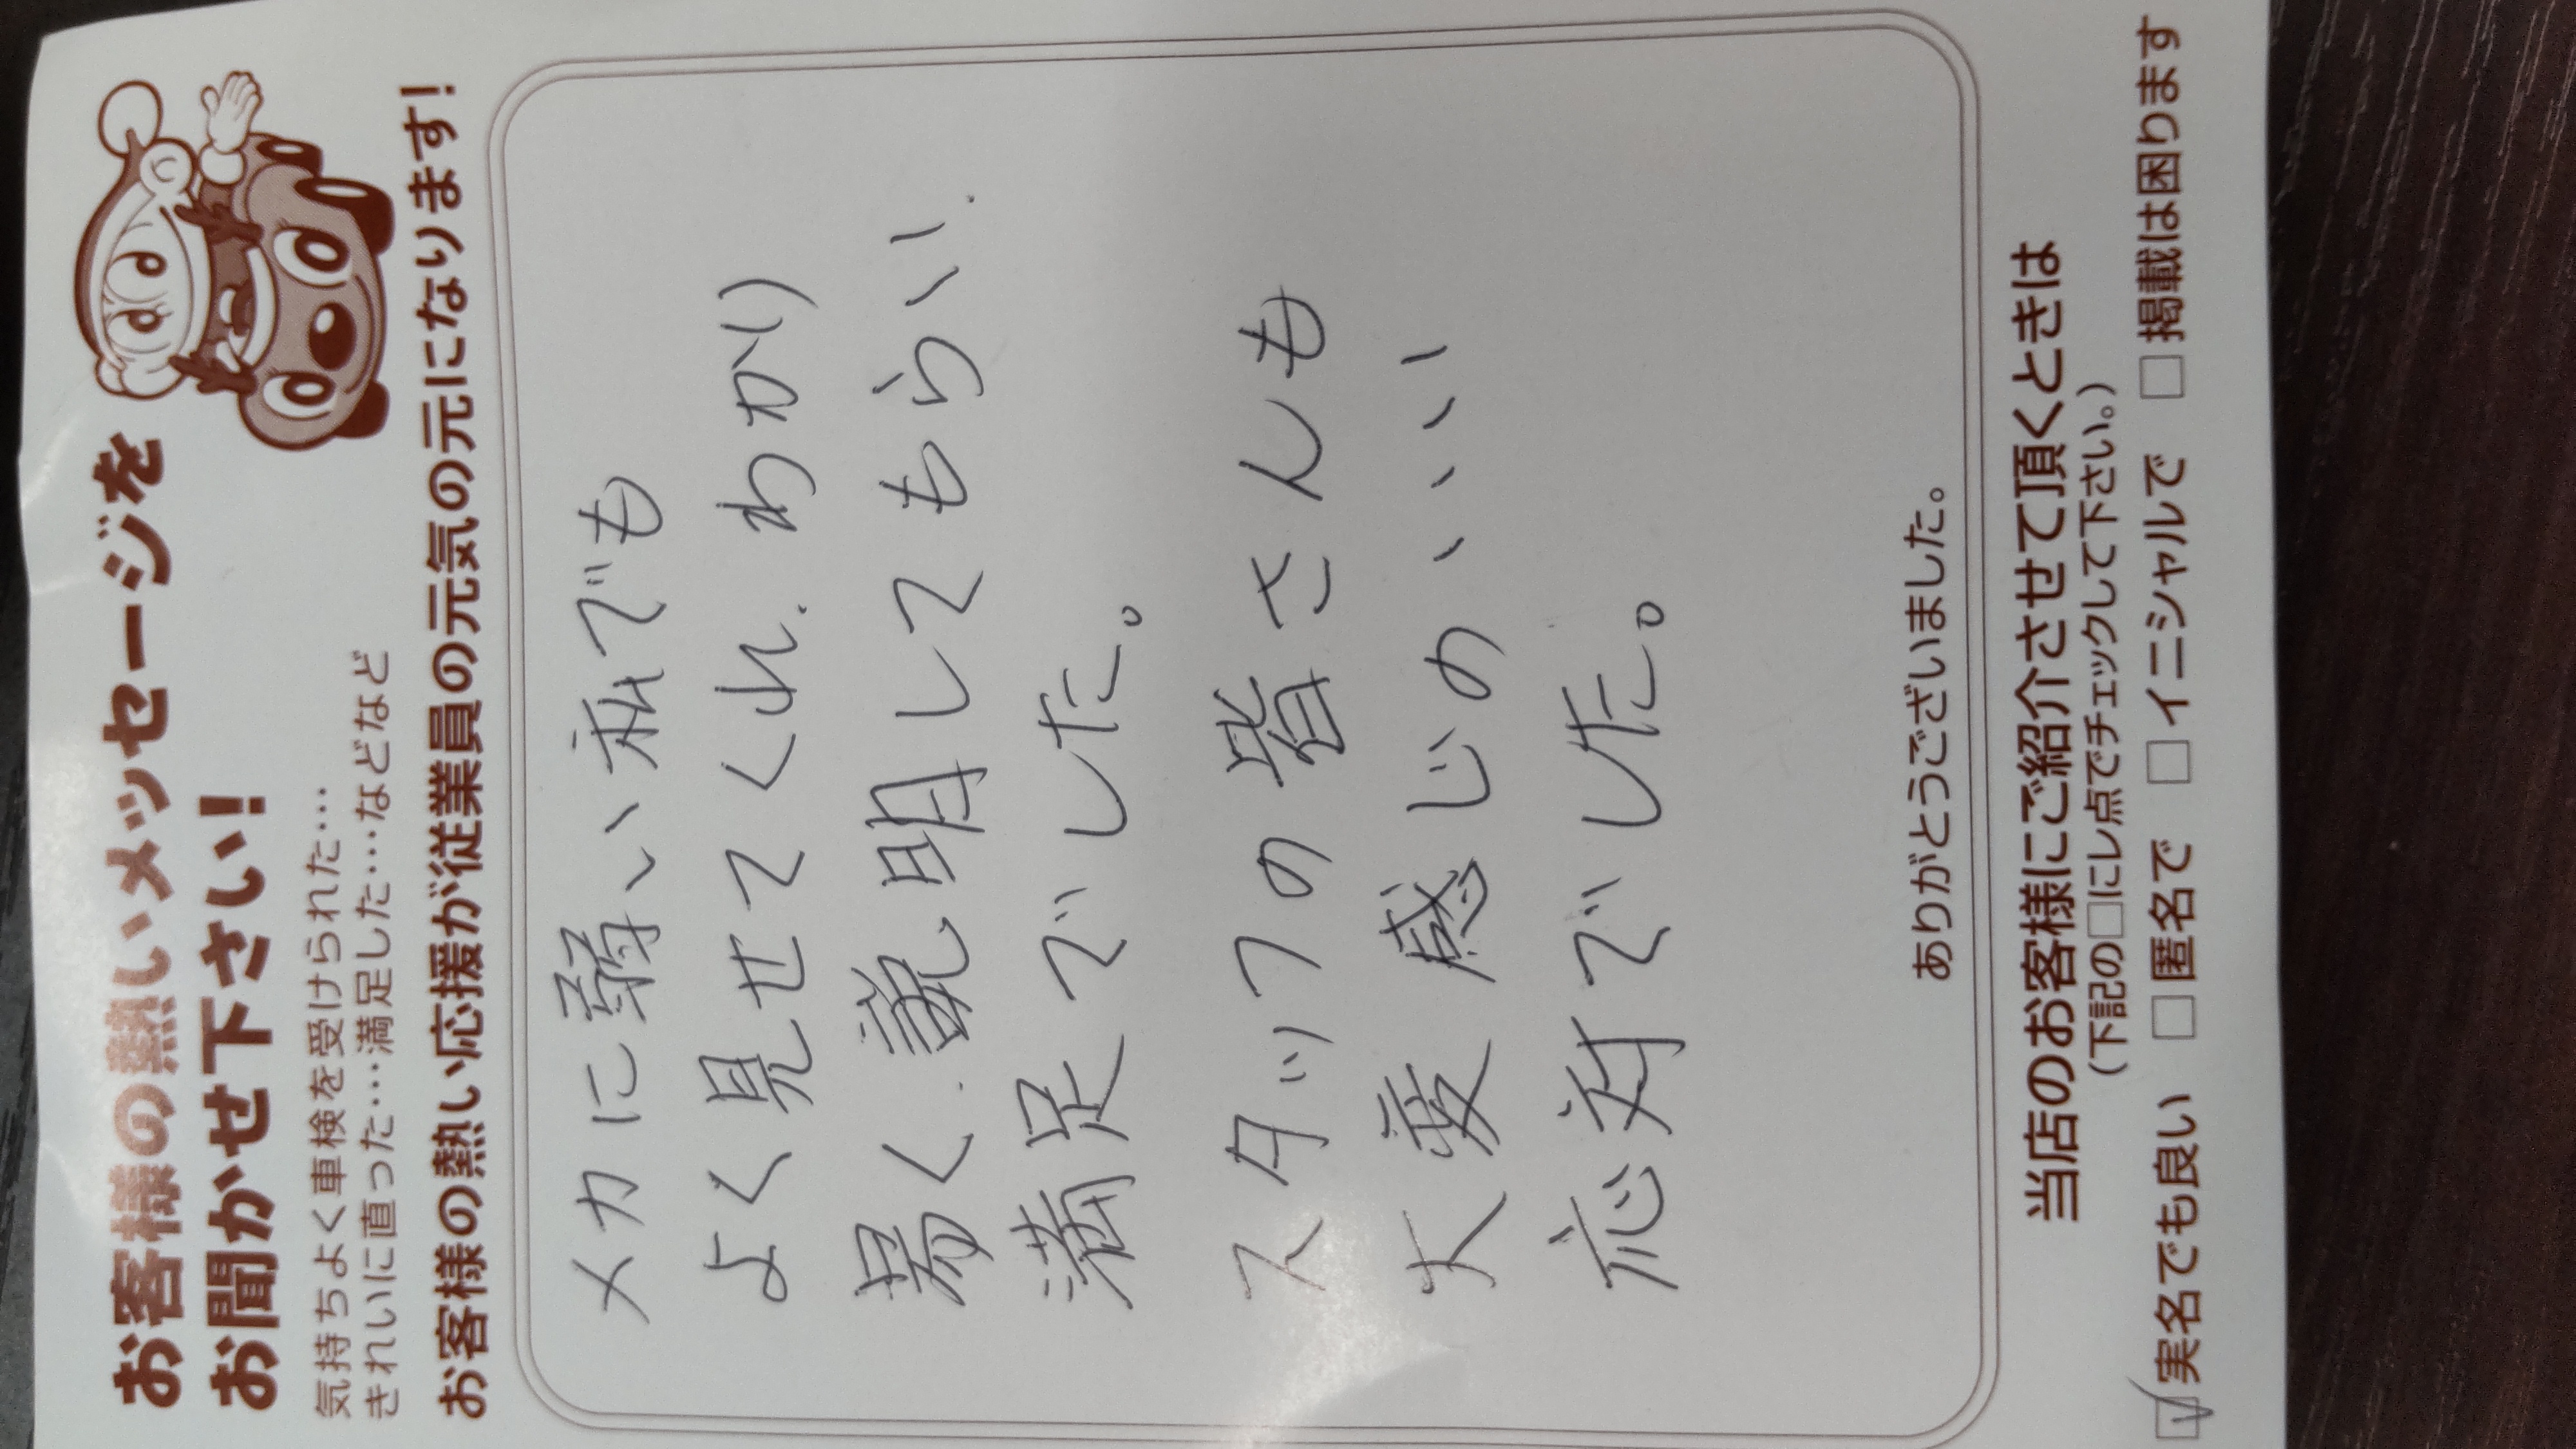 お客様の熱いメッセージを
お聞かせ下さい!
気持ちよく車検を受けられた…
きれいに直った…満足した…などなど
お客様の熱い応援が従業員の元気の元になります!
メカに弱い私でも
よく見せてくれ、わかり
易く、説明してもらい、
満足でした。
スタッフの皆さんも
大変感じのいいい
応対でした。
ありがとうございました。
当店のお客様にご紹介させて頂くときは
(下記の□にレ点でチェックして下さい。)
☑実名でも良い □匿名で □イニシャルで □掲載は困ります